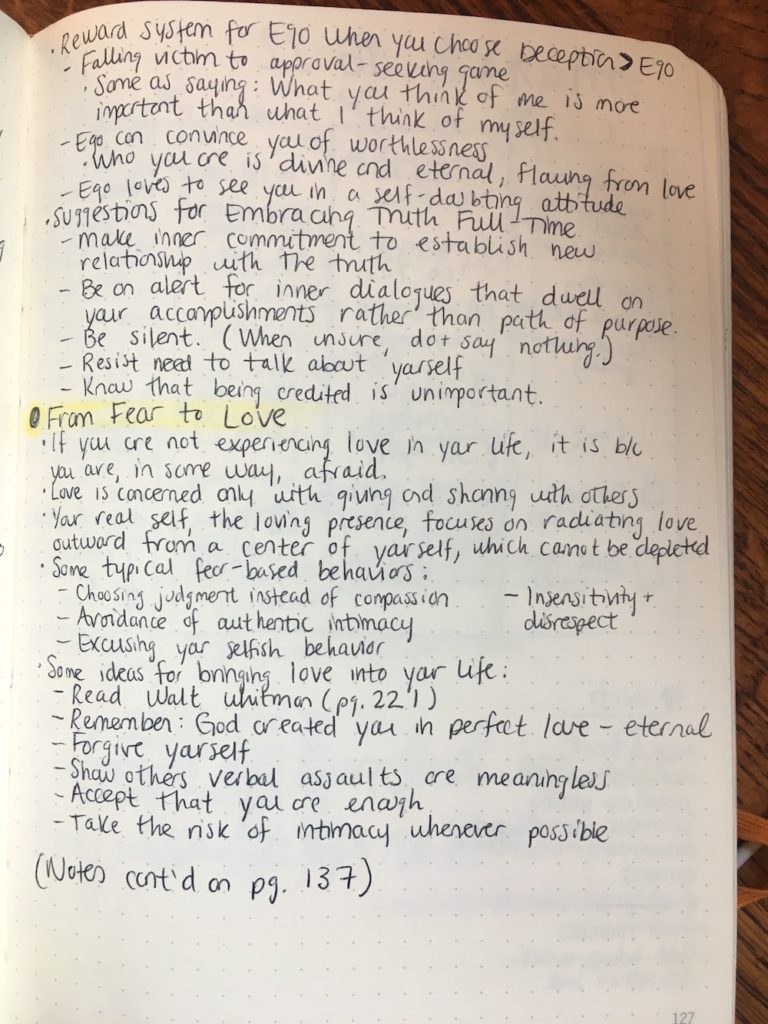 · Reward System for Ego when you choose Deception > Ego
- Falling victim to approval-seeking game
· Same as saying: What you think of me is more
important than what I think of myself.
- Ego can convince you of worthlessness
· Who you are is divine and eternal, flowing from love
- Ego loves to see you in a self-doubting attitude
· Suggestions for Embracing Truth Full-Time
- Make inner commitment to establish new
relationship with the truth
- Be on alert for inner dialogues that dwell on
your accomplishments rather than path of purpose.
- Be silent. (When unsure, do + say nothing.)
- Resist need to talk about yourself
- Know that being credited is unimportant.
From Fear to Love
· If you are not experiencing love in your life, it is b/c
you are, in some way, afraid.
· Love is concerned only with giving and sharing with others
· Your real self, the loving presence, focuses on radiating love
outward from a center of yourself, which cannot be depleted
· Some typical fear-based behaviors:
- Choosing judgment instead of compassion - Insensitivity +
- Avoidance of authentic intimacy disrespect
- Excusing your selfish behavior
· Some ideas for bringing love into your life:
- Read Walt Whitman (pg. 221)
- Remember: God created you in perfect love - eternal
- Forgive yourself
- Show others verbal assaults are meaningless
- Accept that you are enough
- Take the risk of intimacy whenever possible
(Notes cont'd on pg. 137)
127